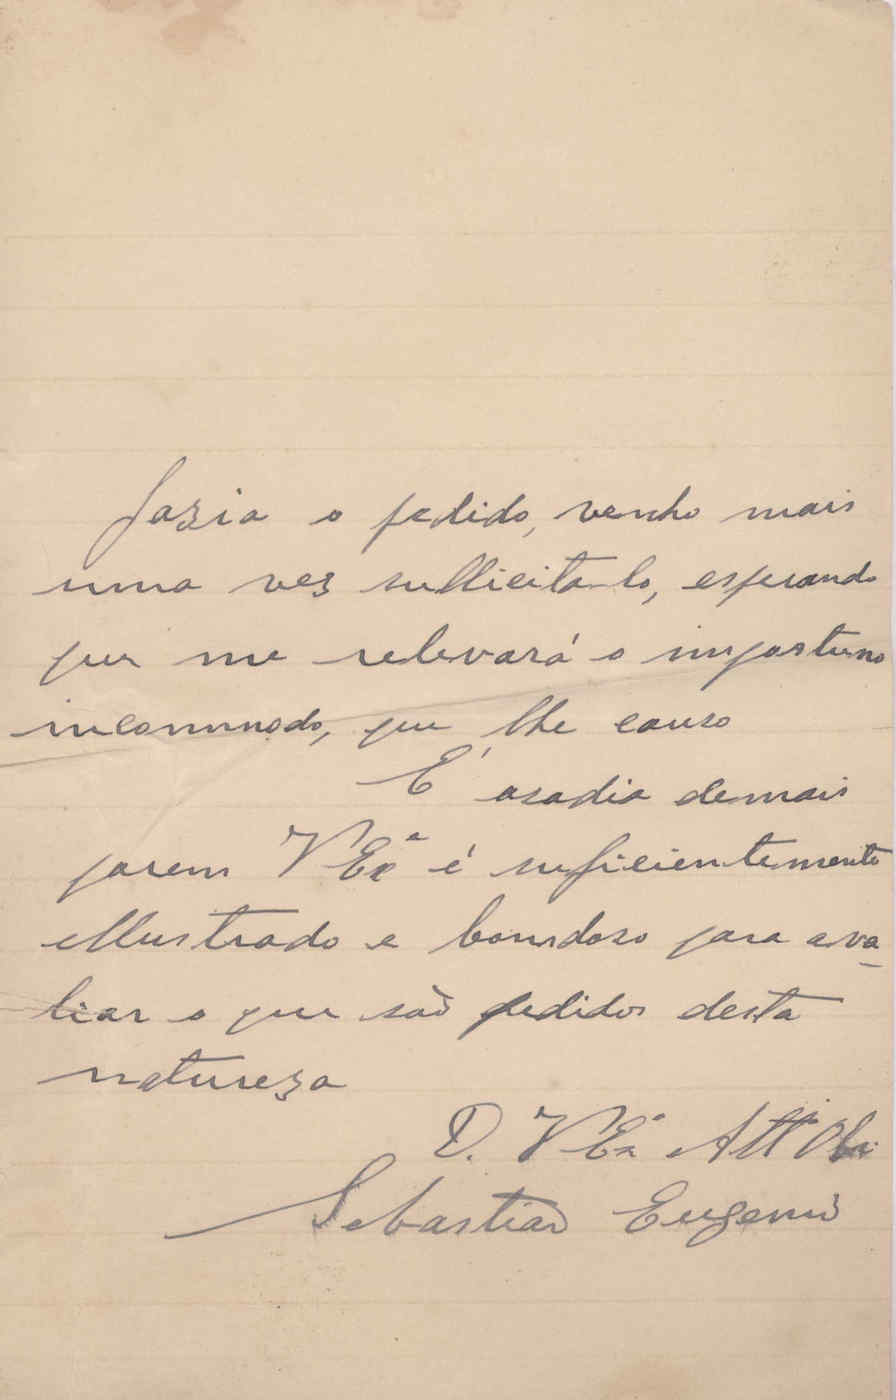 fazia o pedido, venho mais
uma vez sullicita-lo, esperando
que me relevará o importuno
incommodo, que lhe causo
É asadia demais
porem VExª é suficientemente
illustrado e bondoso para ava-
liar o que são pedidos desta
natureza
D. VExª Attº
Sebastião Eugenio